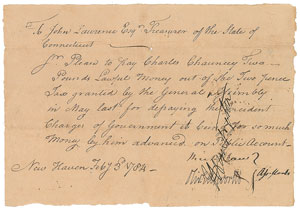 To John Lawrence Esqr Treasurer of the State of
Connecticut
Sr Please to Pay Charles Chauncey Two
Pounds Lawful Money out of the Two Penny
Tax granted by the General Assembly
in May last for defraying the incident
Charges of Government it being for so much
Money by him advanced on Public Account
New Haven Feby 5th 1784